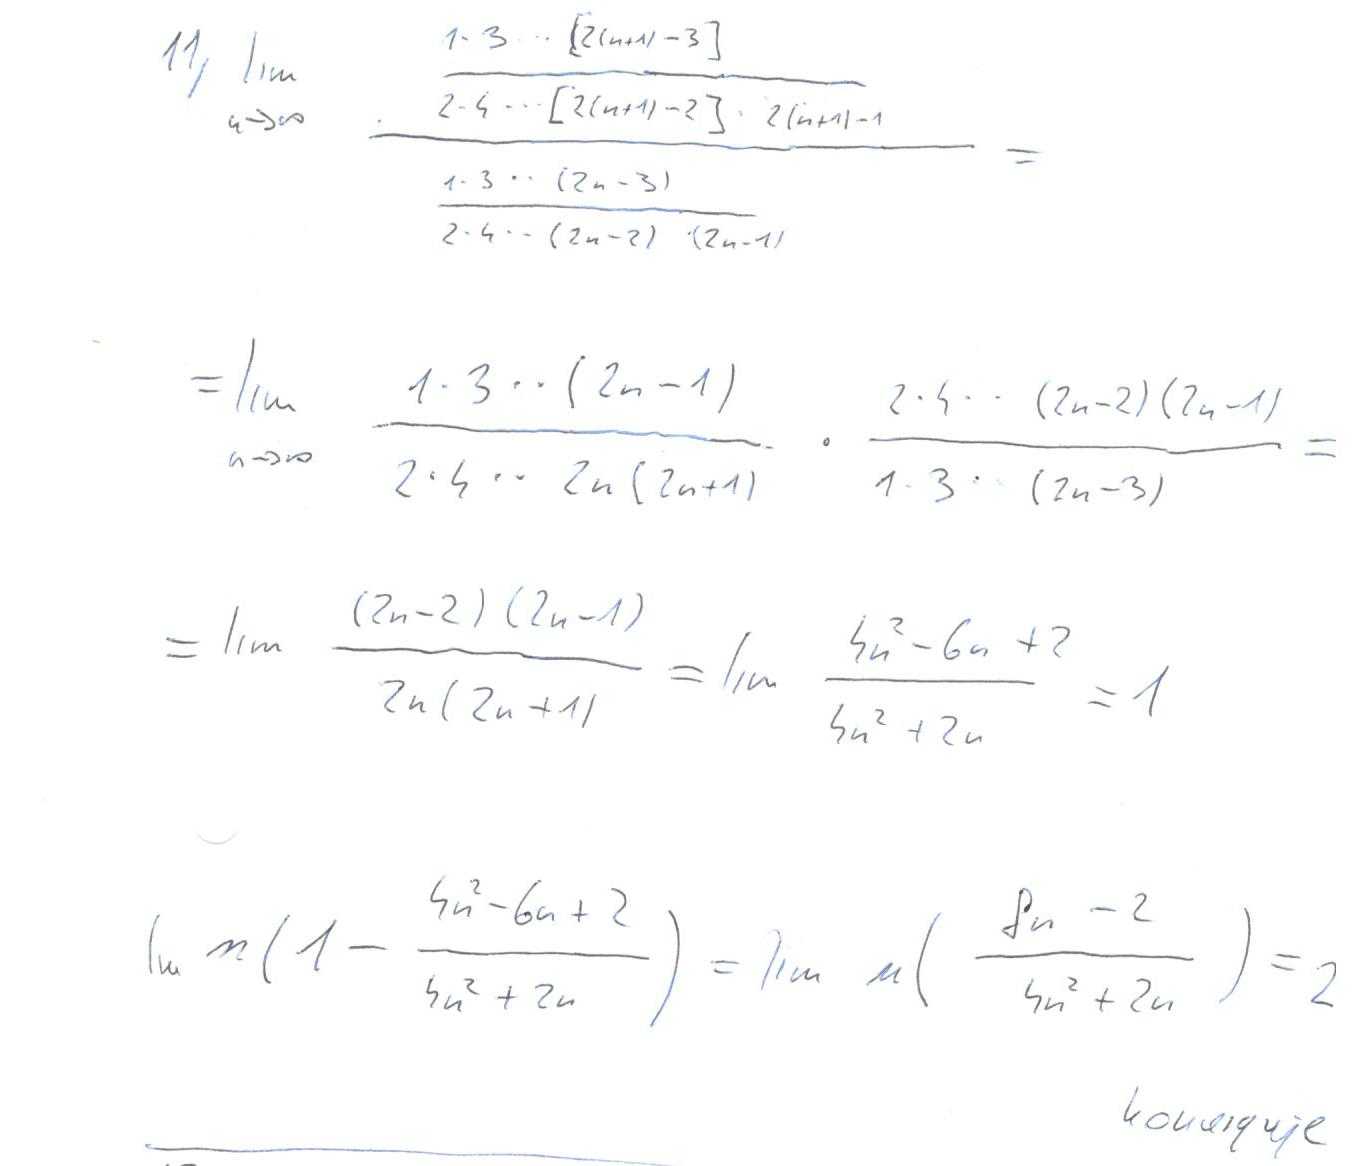 11, lim n→∞ (1·3···[2(n+1)-3])/(2·4···[2(n+1)-2]·2(n+1)-1) / (1·3··(2n-3))/(2·4··(2n-2)·(2n-1)) =
= lim n→∞ (1·3··(2n-1))/(2·4··2n(2n+1)) · (2·4··(2n-2)(2n-1))/(1·3··(2n-3)) =
= lim ((2n-2)(2n-1))/(2n(2n+1)) = lim (4n²-6n+2)/(4n²+2n) = 1
lim n(1 - (4n²-6n+2)/(4n²+2n)) = lim n((8n-2)/(4n²+2n)) = 2
konverguje